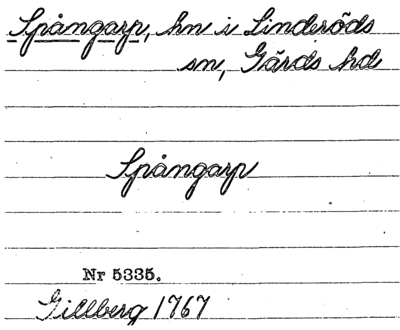 Spångarp, hn i Linderöds
sn, Gärds hd
Spångarp
Nr 5335.
Gillberg 1767